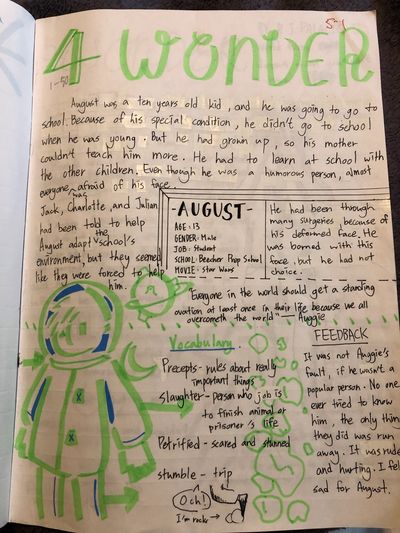 5-1
4 WONDER
1-50
August was a ten years old kid, and he was going to go to
school. Because of his special condition, he didn't go to school
when he was young. But he had grown up, so his mother
couldn't teach him more. He had to learn at school with
the other children. Even though he was a humorous person, almost
everyone was afraid of his face.
Jack, Charlotte, and Julian
had been told to help
August adapt the school's
environment, but they seemed
like they were forced to help
him.
-AUGUST-
AGE: 13
GENDER: Male
JOB: Student
SCHOOL: Beecher Prep School
MOVIE: Star Wars
He had been through
many surgeries, because of
his deformed face. He
was borned with this
face, but he had not
choice.
"Everyone in the world should get a standing
ovation at least once in their life because we all
overcometh the world" — Auggie
Vocabulary.
Precepts- rules about really
important things
Slaughter- person who job is
to finish animal or
prisoner's life
Petrified- scared and stunned
stumble - trip
Och!
I'm rock →
FEEDBACK
It was not Auggie's
fault, if he wasn't a
popular person. No one
ever tried to know
him, the only thing
they did was run
away. It was rude
and hurting. I feel
sad for August.